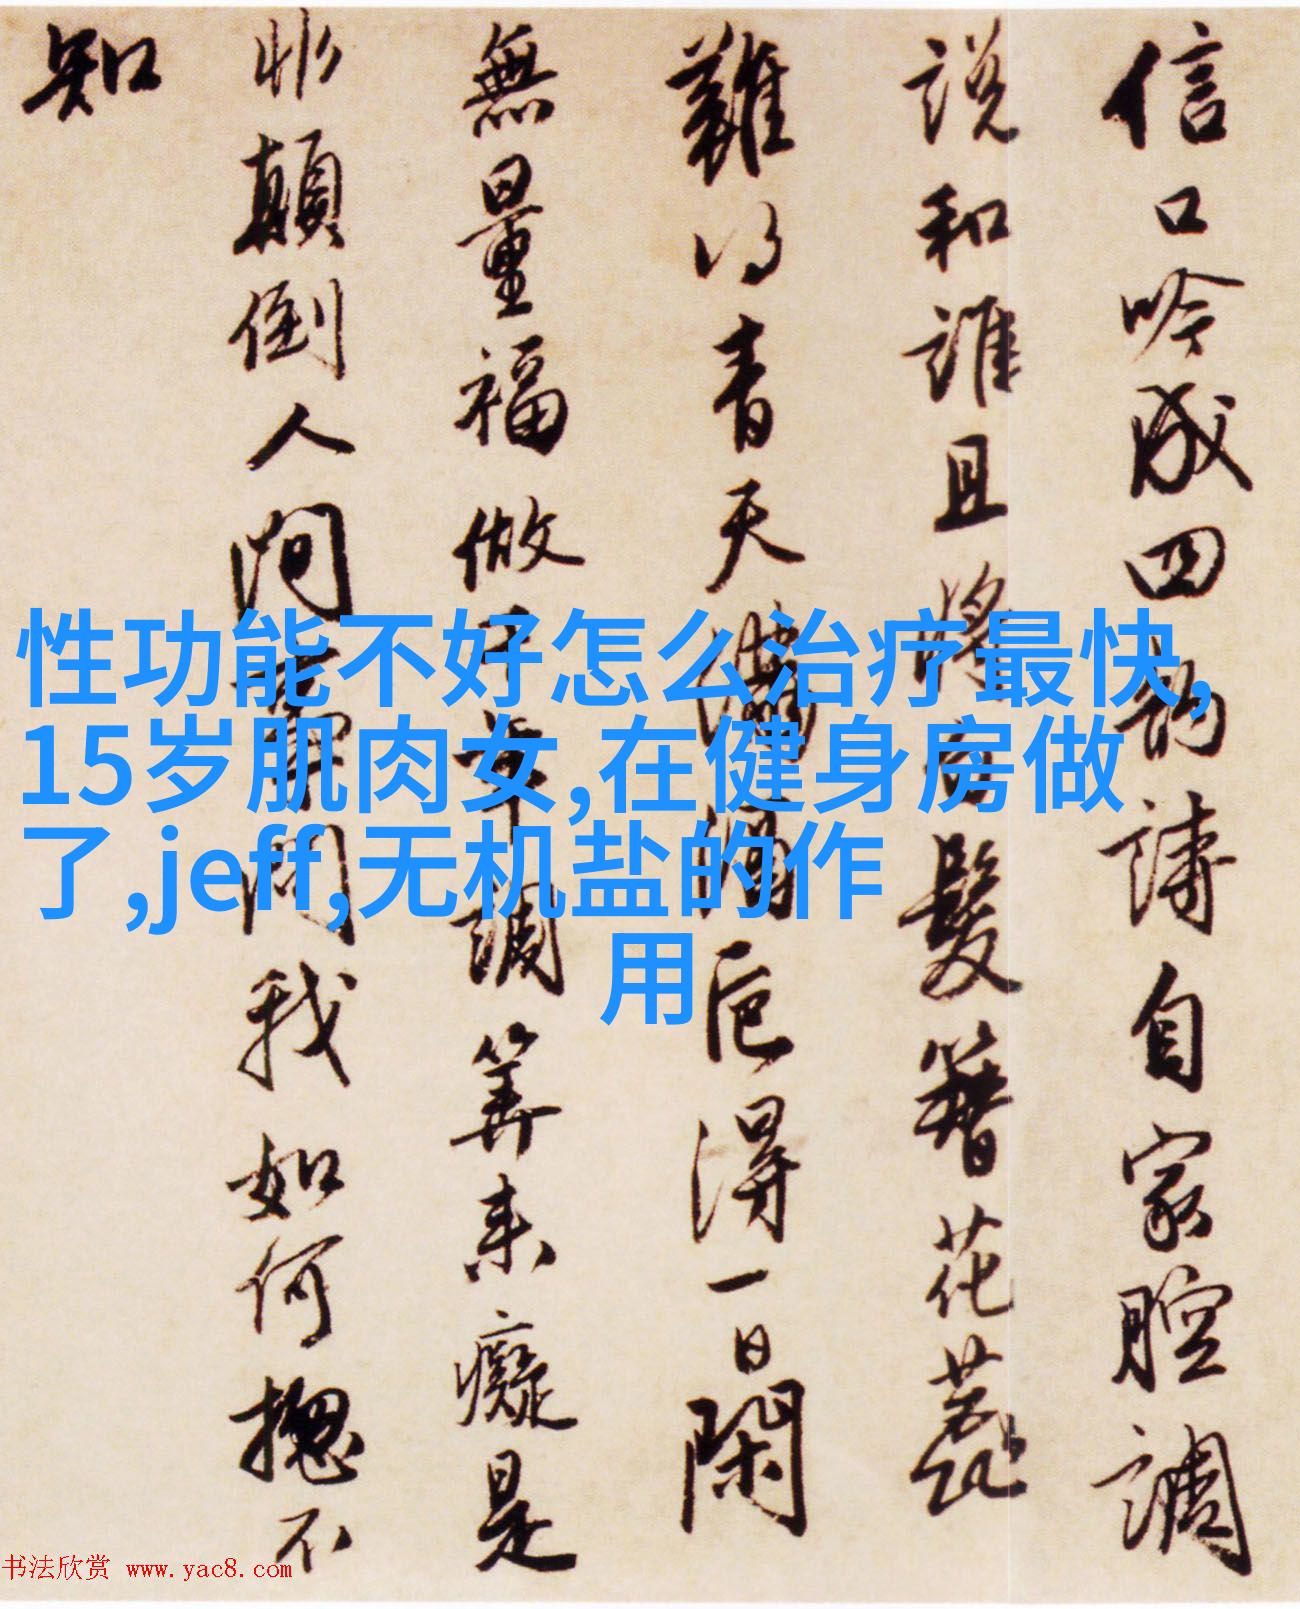 信口吟成四韵詩自家腔調
説和誰且將白髮簪花蕊
難得青天滿酒卮得一日閑
無量福做千年調算来癡是
非顛倒人間事問我如何摠不
知
性功能不好怎么治疗最快,
15岁肌肉女,在健身房做
了,jeff,无机盐的作
用
书法欣赏 www.yac8.com